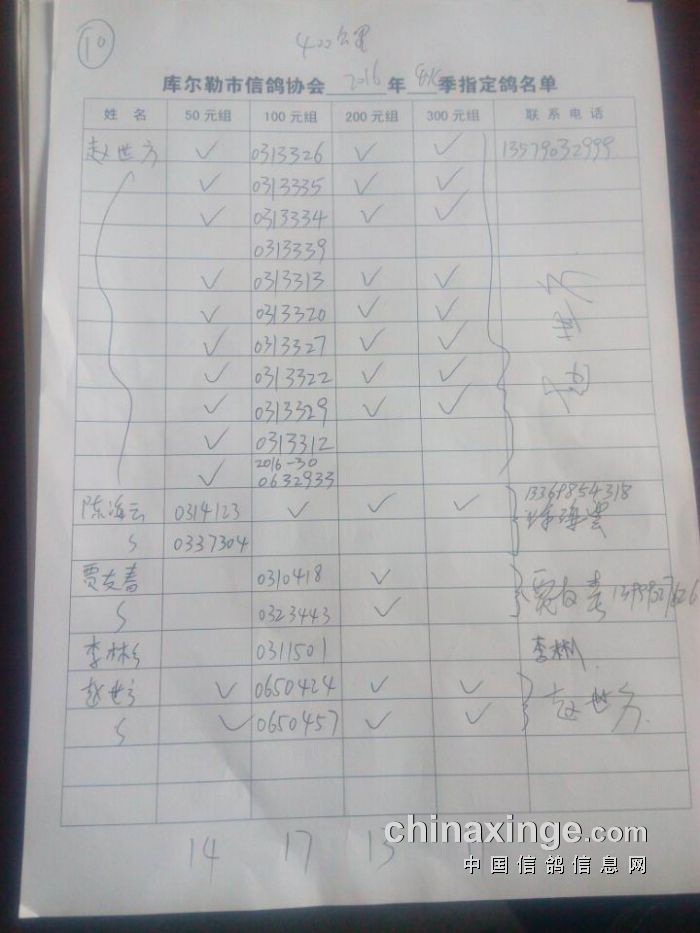 10
422公里
库尔勒市信鸽协会 2016 年 秋 季指定鸽名单
姓 名 50元组 100元组 200元组 300元组 联系电话
赵世方 ✓ 0313326 ✓ ✓ 13579032999
✓ 0313335 ✓ ✓
✓ 0313334 ✓ ✓
0313339
✓ 0313313 ✓ ✓
✓ 0313320 ✓ ✓
✓ 0313327 ✓ ✓
✓ 0313322 ✓ ✓
✓ 0313329 ✓ ✓
✓ 0313312
✓ 2016-30
0632933
赵世方
陈海云 0314123 ✓ ✓ ✓ 13369854318
0337304
贾友春 0310418 ✓ 贾友春
0323443 ✓
李彬 0311501 李彬
赵世方 ✓ 0650424 ✓ ✓ 赵世方
✓ 0650457 ✓ ✓
14 17 13
chinaxinge.com
中国信鸽信息网